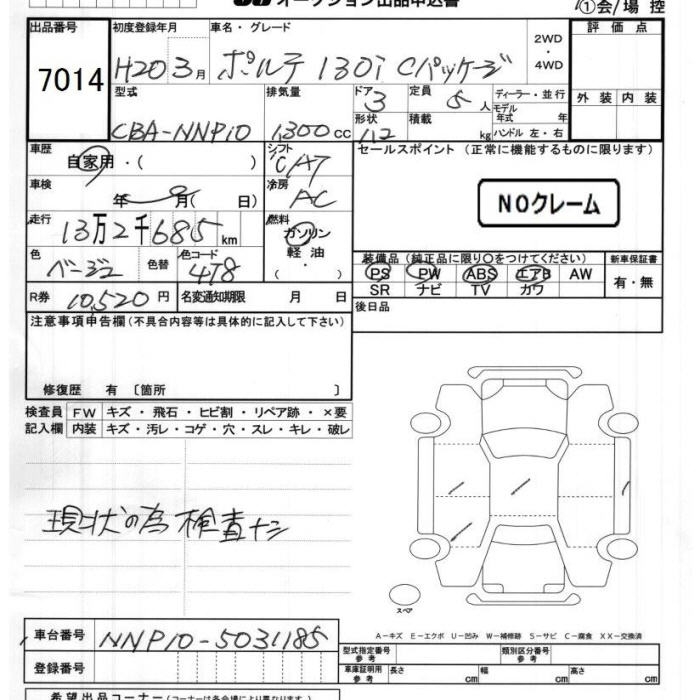 オークション出品申込書
①会/場 控
出品番号 初度登録年月 車名・グレード 評価点
7014 H20 3月 ポルテ 130i Cパッケージ 2WD・4WD
型式 排気量 ドア 3 定員 5人 ディーラー・並行 外装 内装
CBA-NNP10 1300cc 形状 積載 kg モデル年式 年 ハンドル 左・右
車歴 自家用・( ) シフト CAT セールスポイント (正常に機能するものに限ります)
車検 年 月( 日) 冷房 AC NOクレーム
走行 13万2千685km 燃料 ガソリン 軽油 ( ・ )
装備品 (純正品に限り○をつけてください) 新車保証書
色 ベージュ 色替 色コード 4T8 PS PW ABS エアB AW 有・無
SR ナビ TV カワ
R券 10,520円 名変通知期限 月 日 後日品
注意事項申告欄 (不具合内容等は具体的に記入して下さい)
修復歴 有 〔箇所 〕
検査員 FW キズ・飛石・ヒビ割・リペア跡・×要
記入欄 内装 キズ・汚レ・コゲ・穴・スレ・キレ・破レ
現状の為 検査ナシ
スペア
A-キズ E-エクボ U-凹み W-補修跡 S-サビ C-腐食 XX-交換済
車台番号 NNP10-5031185
型式指定番号 参考 類別区分番号 参考
登録番号 車庫証明用 参考 長さ cm 幅 cm 高さ cm
希望出品コーナー (コーナーは各会場により異なります)